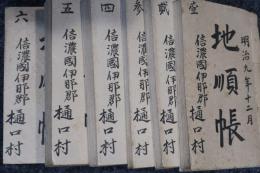 明治九年十二月
地順帳
壹
信濃國伊那郡
樋口村
貳
信濃國伊那郡
樋口村
参
信濃國伊那郡
樋口村
四
信濃國伊那郡
樋口村
五
信濃國伊那郡
樋口村
六
信濃國伊那郡
樋口村